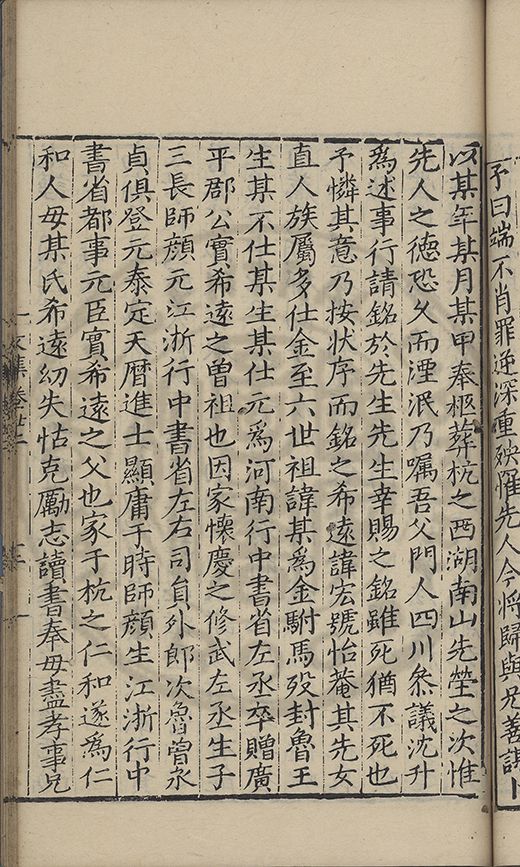 子曰端不肖罪逆深重殃罹先人今将歸與兄善謀卜
以某年某月某甲奉柩葬杭之西湖南山先塋之次惟
先人之德恐久而湮泯乃嘱吾父門人四川叅議沈升
為述事行請銘於先生先生幸賜之銘雖死猶不死也
予憐其意乃按状序而銘之希遠諱宏號怡菴其先女
直人族屬多仕金至六世祖諱某為金駙馬殁封魯王
生某不仕某生某仕元為河南行中書省左丞卒贈廣
平郡公實希遠之曽祖也因家懷慶之修武左丞生子
三長師顔元江浙行中書省左右司貟外郎次魯曽永
貞俱登元泰定天曆進士顯庸于時師顔生江浙行中
書省都事元臣實希遠之父也家于杭之仁和遂為仁
和人毋某氏希遠幼失怙克勵志讀書奉毋盡孝事兄
文集卷廿二